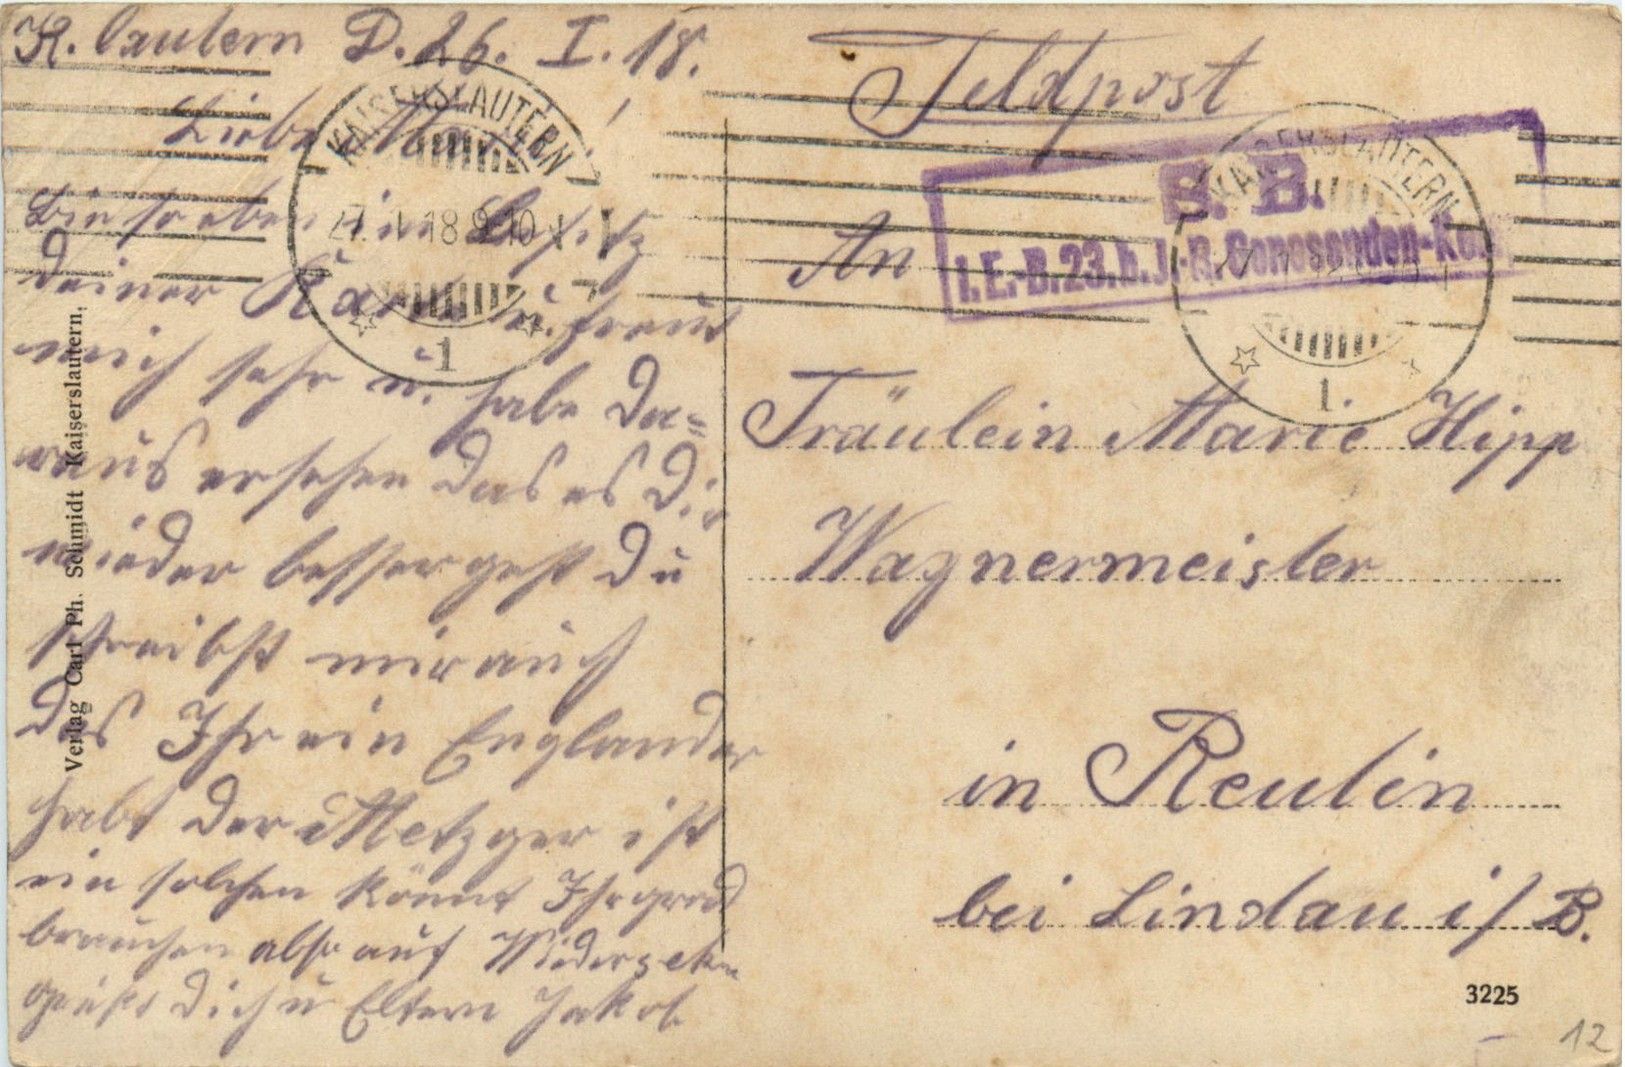 K. lautern D. 26. I. 18.
Liebe
Bin so eben im Besitz
deiner Karte u. freut
mich sehr u. habe da=
raus ersehen das es Dir
wieder besser geht Du
schreibst mir auch
das Ihr ein Englander
habt der Metzger ist
ein solchen könnt Ihr grad
brauchen also auf Widersehn
grüßt Dich u Eltern Jakob
Verlag Carl Ph. Schmidt Kaiserslautern.
KAISERSLAUTERN
27. 1. 18 9-10
1
Feldpost
S. B.
I. E.-B. 23. b. J.-R. Genesenden-Ko
KAISERSLAUTERN
1.
An
Fräulein Marie Hipp
Wagnermeister
in Reutin
bei Lindau i/B.
3225
12